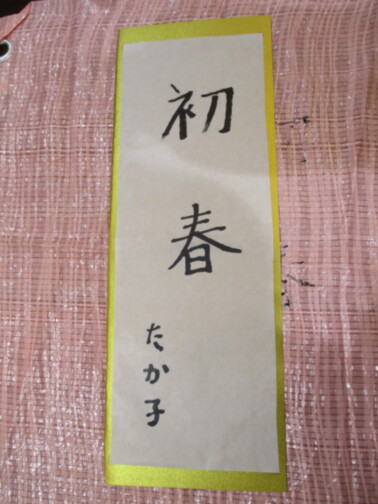 初春
たか子